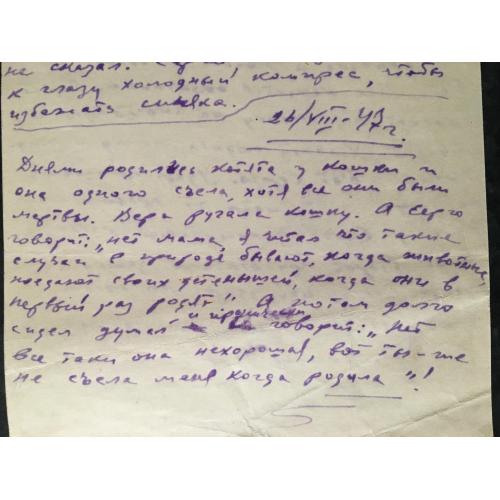 не сказал.
к глазу холодный компрес, чтобы
избежать синяка.
26/VIII-47г.
Днями родились котята у кошки и
она одного съела, хотя все они были
мертвы. Вера ругала кошку. А Серго
говорит: „нет мама, я читал что такие
случаи в природе бывают, когда животные
поедают своих детенышей, когда они в
первый раз родят". А потом долго
сидел думал и говорит: „Нет
все таки она нехорошая, вот ты-же
не съела меня когда родила"!